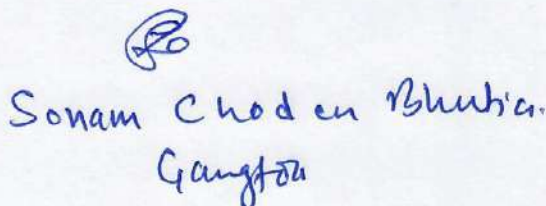 Sonam Choden Bhutia.
Gangtok